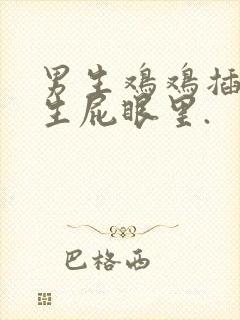 男生鸡鸡插
生屁眼里.
巴格西